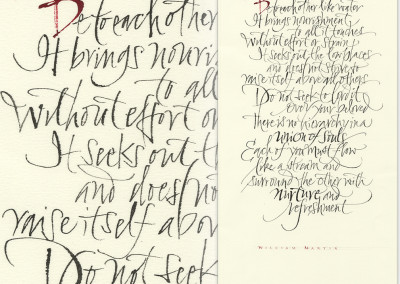 Be to each other
It brings nouris
to all
Without effort or
It seeks out th
and does no
raise itself abov
Do not seek
Be to each other like water
It brings nourishment
to all it touches
Without effort or strain
It seeks out the low places
and does not strive to
raise itself above all others
Do not seek to lord it
over your beloved
There is no hierarchy in a
union of souls
Each of you must flow
like a stream and
surround the other with
nurture and
refreshment
WILLIAM MARTIN